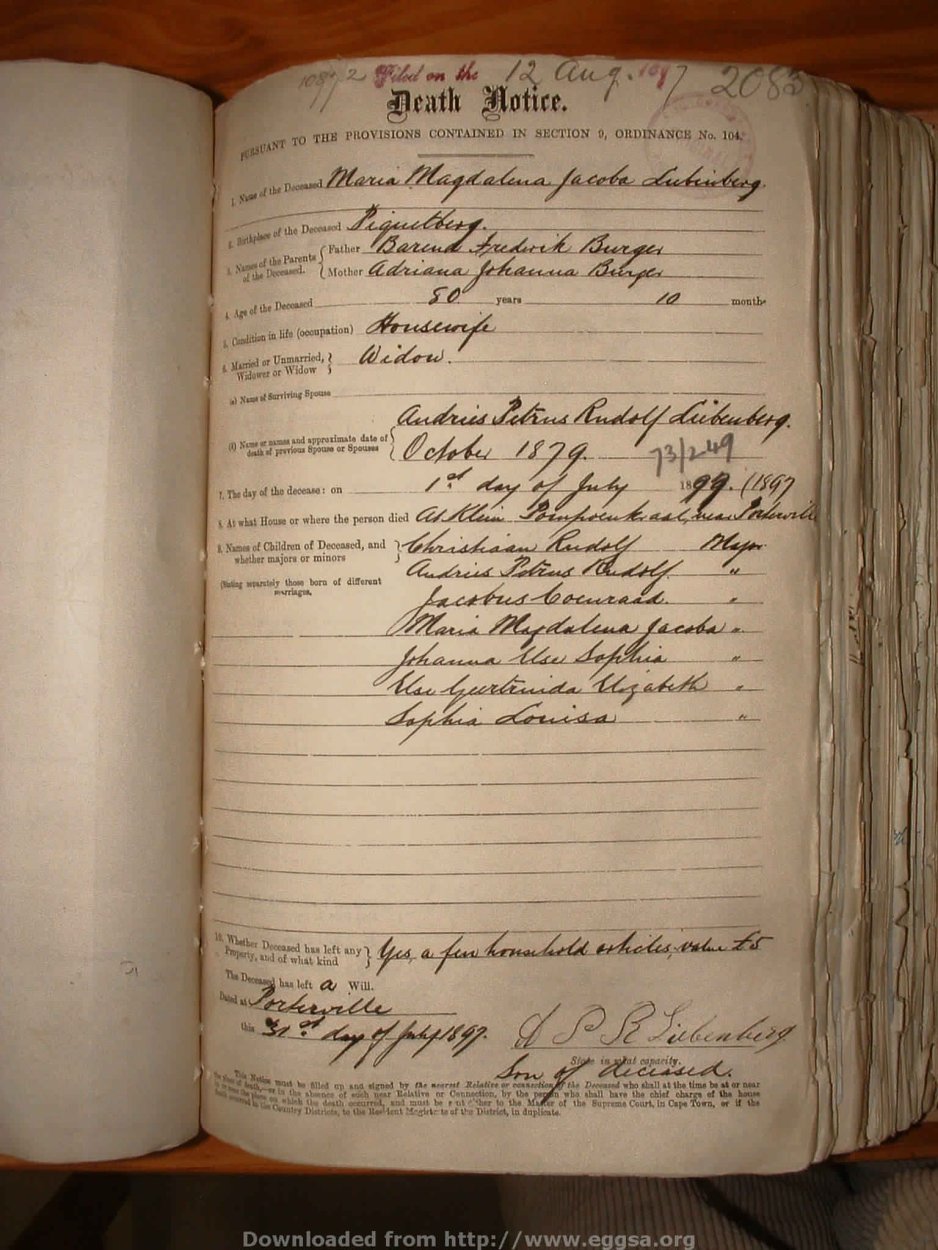 1087/2 Filed on the 12 Aug. 1897 2083
Death Notice.
PURSUANT TO THE PROVISIONS CONTAINED IN SECTION 9, ORDINANCE No. 104.
1. Name of the Deceased Maria Magdalena Jacoba Liebenberg.
2. Birthplace of the Deceased Piquetberg.
3. Names of the Parents of the Deceased. { Father Barend Fredrik Burger
Mother Adriana Johanna Burger
4. Age of the Deceased 80 years 10 months
5. Condition in life (occupation) Housewife
6. Married or Unmarried, Widower or Widow } Widow.
(a) Name of Surviving Spouse
Andries Petrus Rudolf Liebenberg.
(b) Name or names and approximate date of death of previous Spouse or Spouses } October 1879.
73/249
7. The day of the decease: on 1st day of July 1897. (1897
8. At what House or where the person died At Klein Pampoenkraal, near Porterville
9. Names of Children of Deceased, and whether majors or minors } Christiaan Rudolf Major
(Stating separately those born of different marriages. Andries Petrus Rudolf. "
Jacobus Coenraad. "
Maria Magdalena Jacoba "
Johanna Else Sophia "
Else Geertruida Elizabeth "
Sophia Louisa "
10. Whether Deceased has left any Property, and of what kind } Yes, a few household articles, value £5
The Deceased has left a Will.
Dated at Porterville
this 31st day of July 1897. A P R Liebenberg
State in what capacity.
Son of deceased.
This Notice must be filled up and signed by the nearest Relative or connection of the Deceased who shall at the time be at or near
the place of death,—or in the absence of such near Relative or Connection, by the person who shall have the chief charge of the house
in or near the place on which the death occurred, and must be sent either to the Master of the Supreme Court, in Cape Town, or if the
death occurred in the Country Districts, to the Resident Magistrate of the District, in duplicate.
Downloaded from http://www.eggsa.org